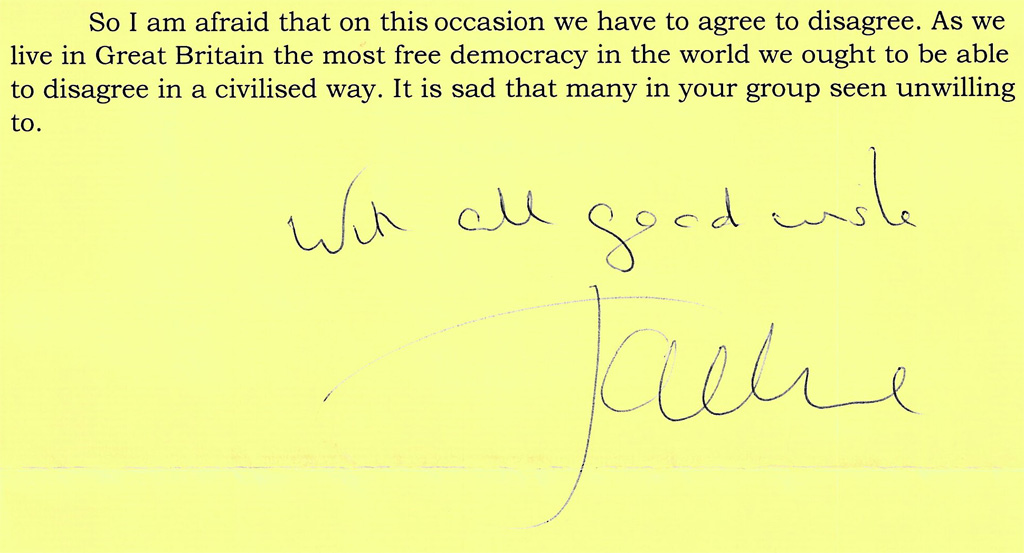 So I am afraid that on this occasion we have to agree to disagree. As we
live in Great Britain the most free democracy in the world we ought to be able
to disagree in a civilised way. It is sad that many in your group seen unwilling
to.
With all good wishe